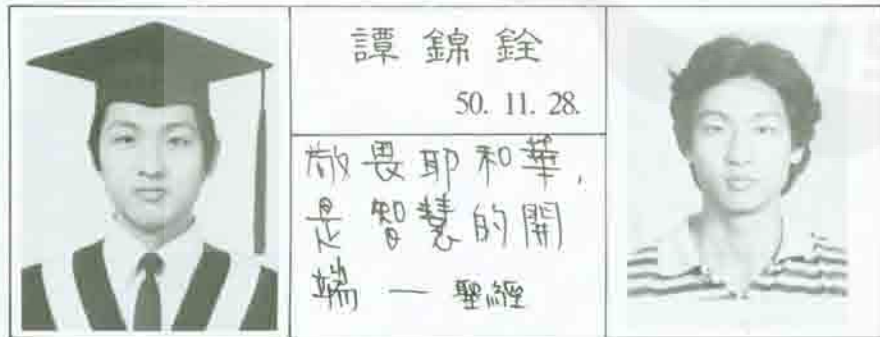 譚錦銓
50. 11. 28.
敬畏耶和華,
是智慧的開
端 — 聖經